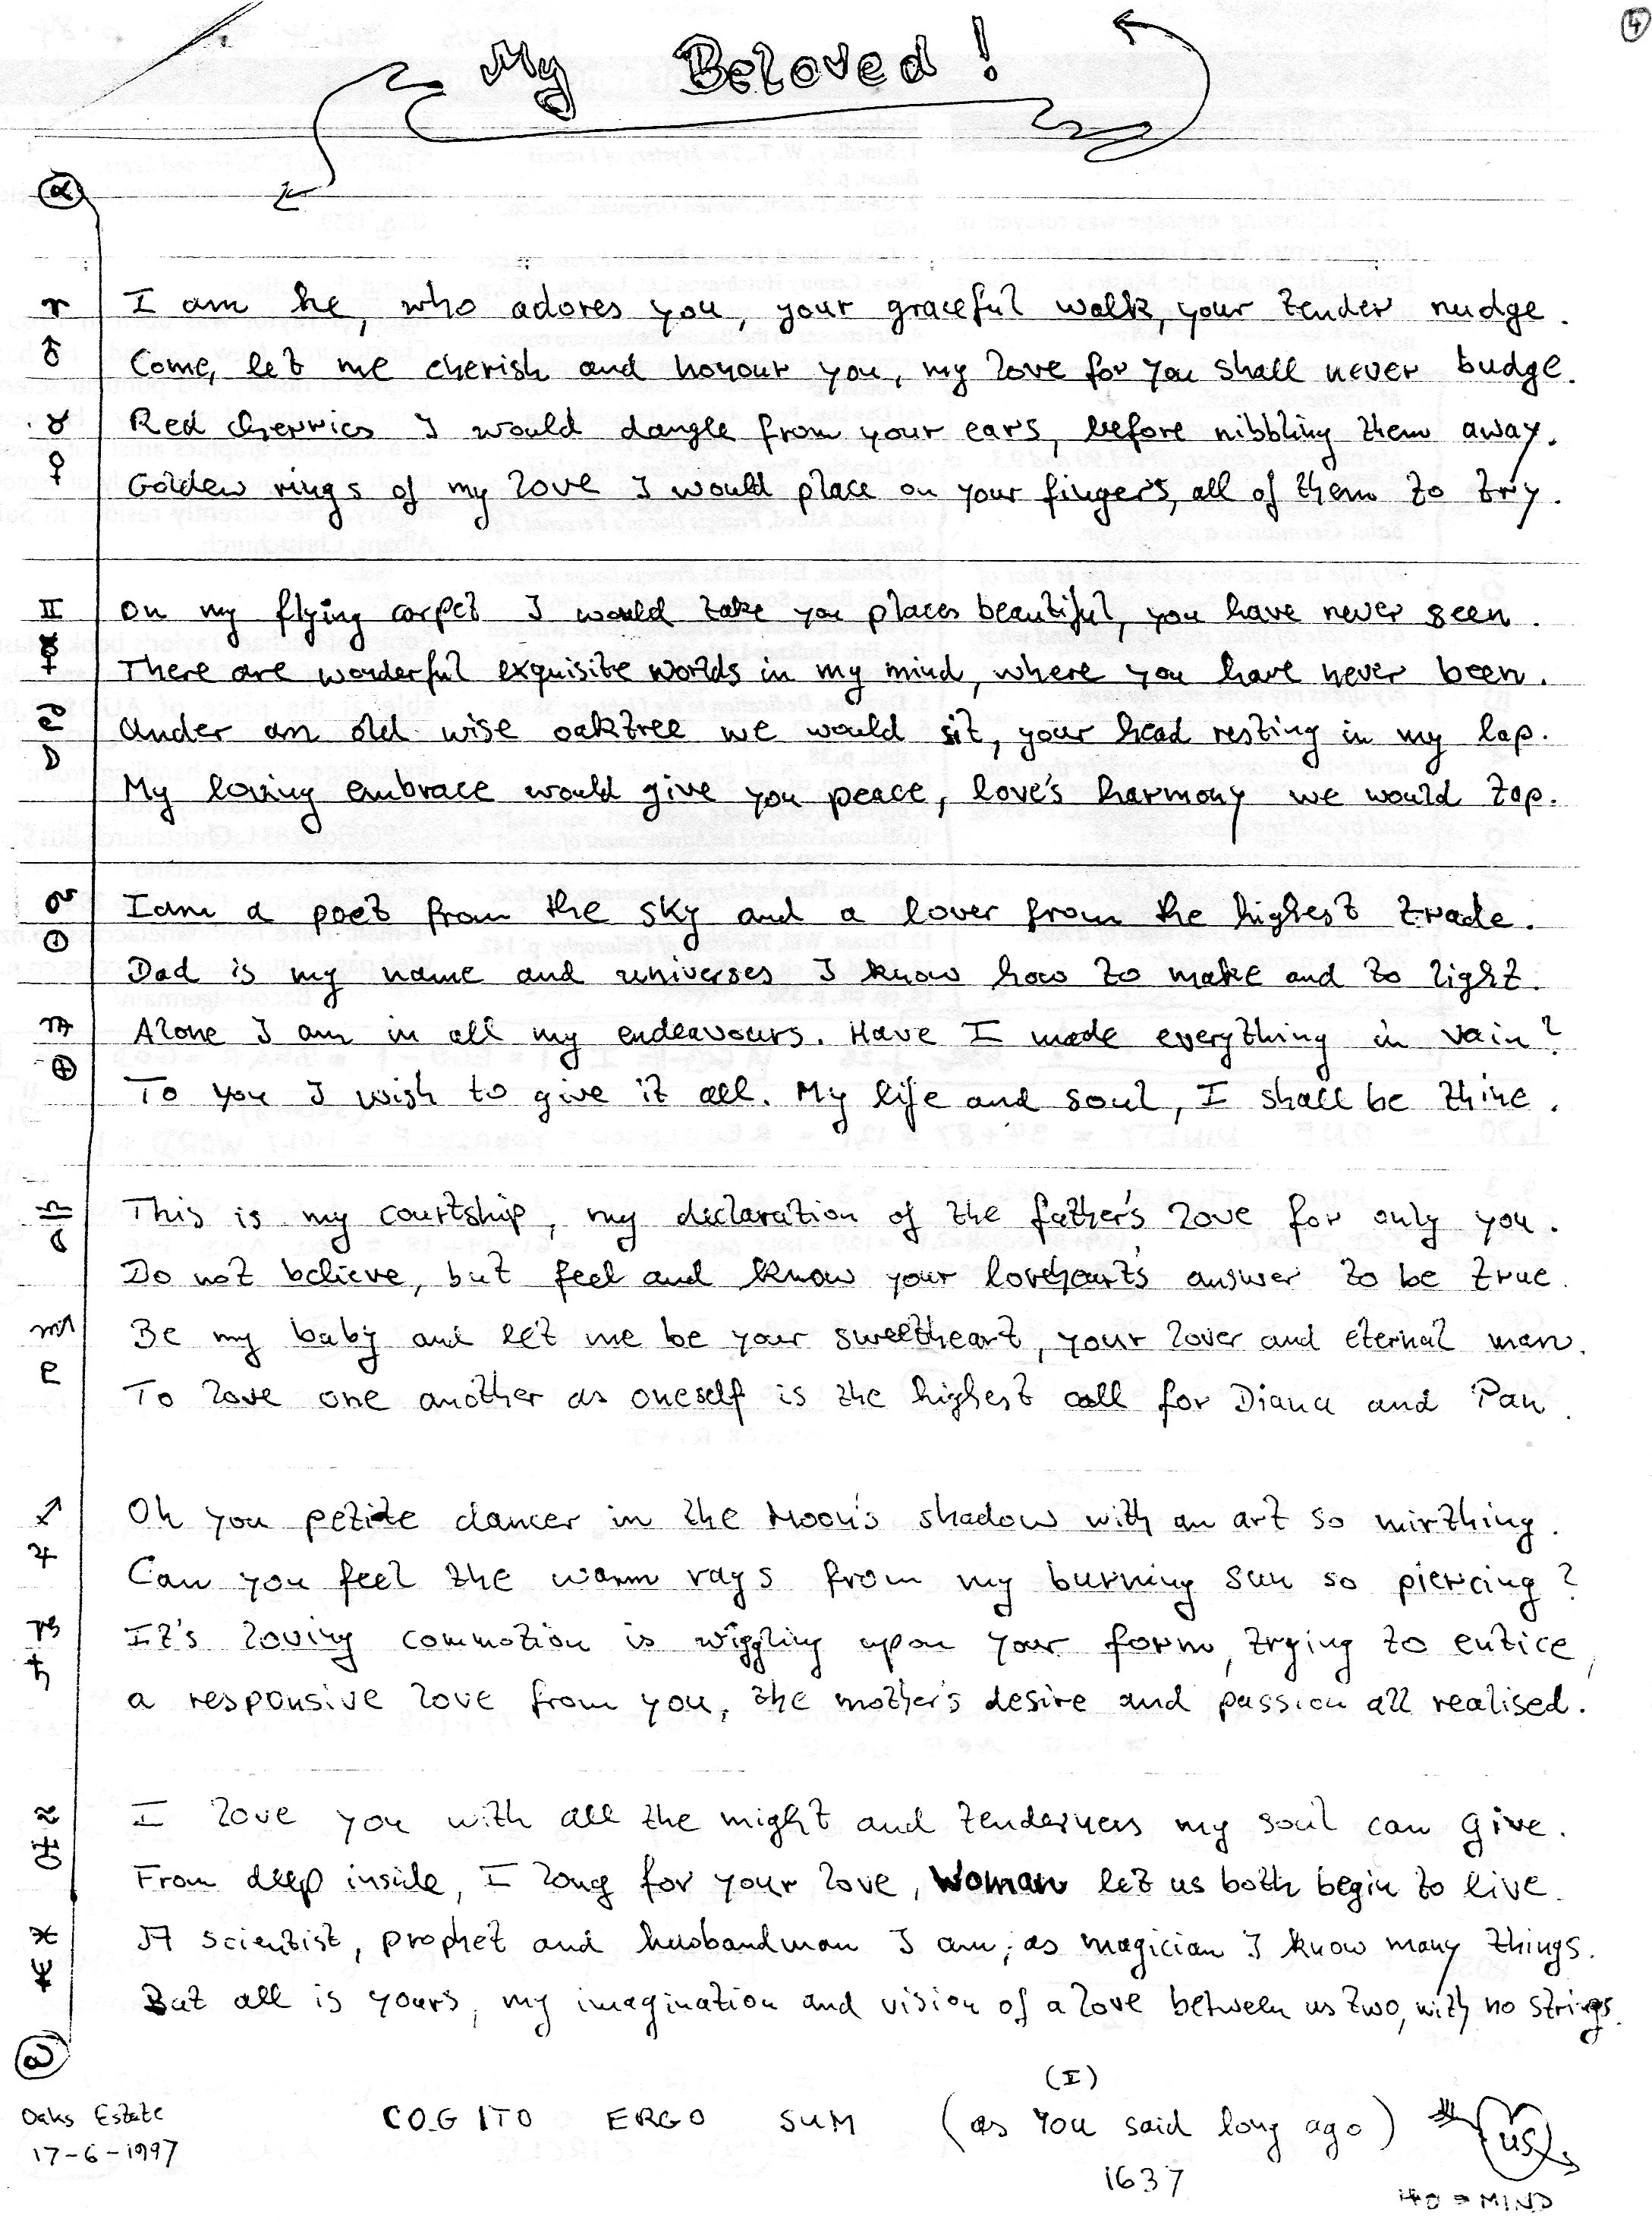 4
My Beloved!
α
♈ I am he, who adores you, your graceful walk, your tender nudge.
♂ Come, let me cherish and honour you, my love for you shall never budge.
♉ Red cherries I would dangle from your ears, before nibbling them away.
♀ Golden rings of my love I would place on your fingers, all of them to try.
♊ On my flying carpet I would take you places beautiful, you have never seen.
☿ There are wonderful exquisite worlds in my mind, where you have never been.
♋ Under an old wise oaktree we would sit, your head resting in my lap.
☽ My loving embrace would give you peace, love's harmony we would tap.
♌ I am a poet from the sky and a lover from the highest trade.
☉ Dad is my name and universes I know how to make and to light.
♍ Alone I am in all my endeavours. Have I made everything in vain?
⊕ To you I wish to give it all. My life and soul, I shall be thine.
♎ This is my courtship, my declaration of the father's love for only you.
Do not believe, but feel and know your loveheart's answer to be true.
♏ Be my baby and let me be your sweetheart, your lover and eternal man.
♇ To love one another as oneself is the highest call for Diana and Pan.
♐ Oh you petite dancer in the Moon's shadow with an art so mirthing.
♃ Can you feel the warm rays from my burning sun so piercing?
♑ It's loving commotion is wiggling upon your form, trying to entice,
♄ a responsive love from you, the mother's desire and passion all realised.
♒ I love you with all the might and tenderness my soul can give.
♅ From deep inside, I long for your love, Woman let us both begin to live.
♓ A scientist, prophet and husbandman I am; as magician I know many things.
♆ But all is yours, my imagination and vision of a love between us two, with no strings.
ω
(I)
Oaks Estate COGITO ERGO SUM (as You said long ago) US
17-6-1997
1637
40 = MIND